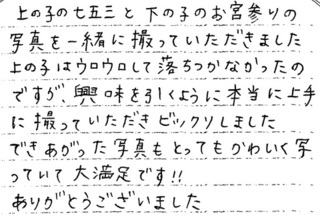 上の子の七五三と下の子のお宮参りの
写真を一緒に撮っていただきました
上の子はウロウロして落ちつかなかったの
ですが、興味を引くように本当に上手
に撮っていただきビックリしました
できあがった写真もとってもかわいく写
っていて大満足です!!
ありがとうございました